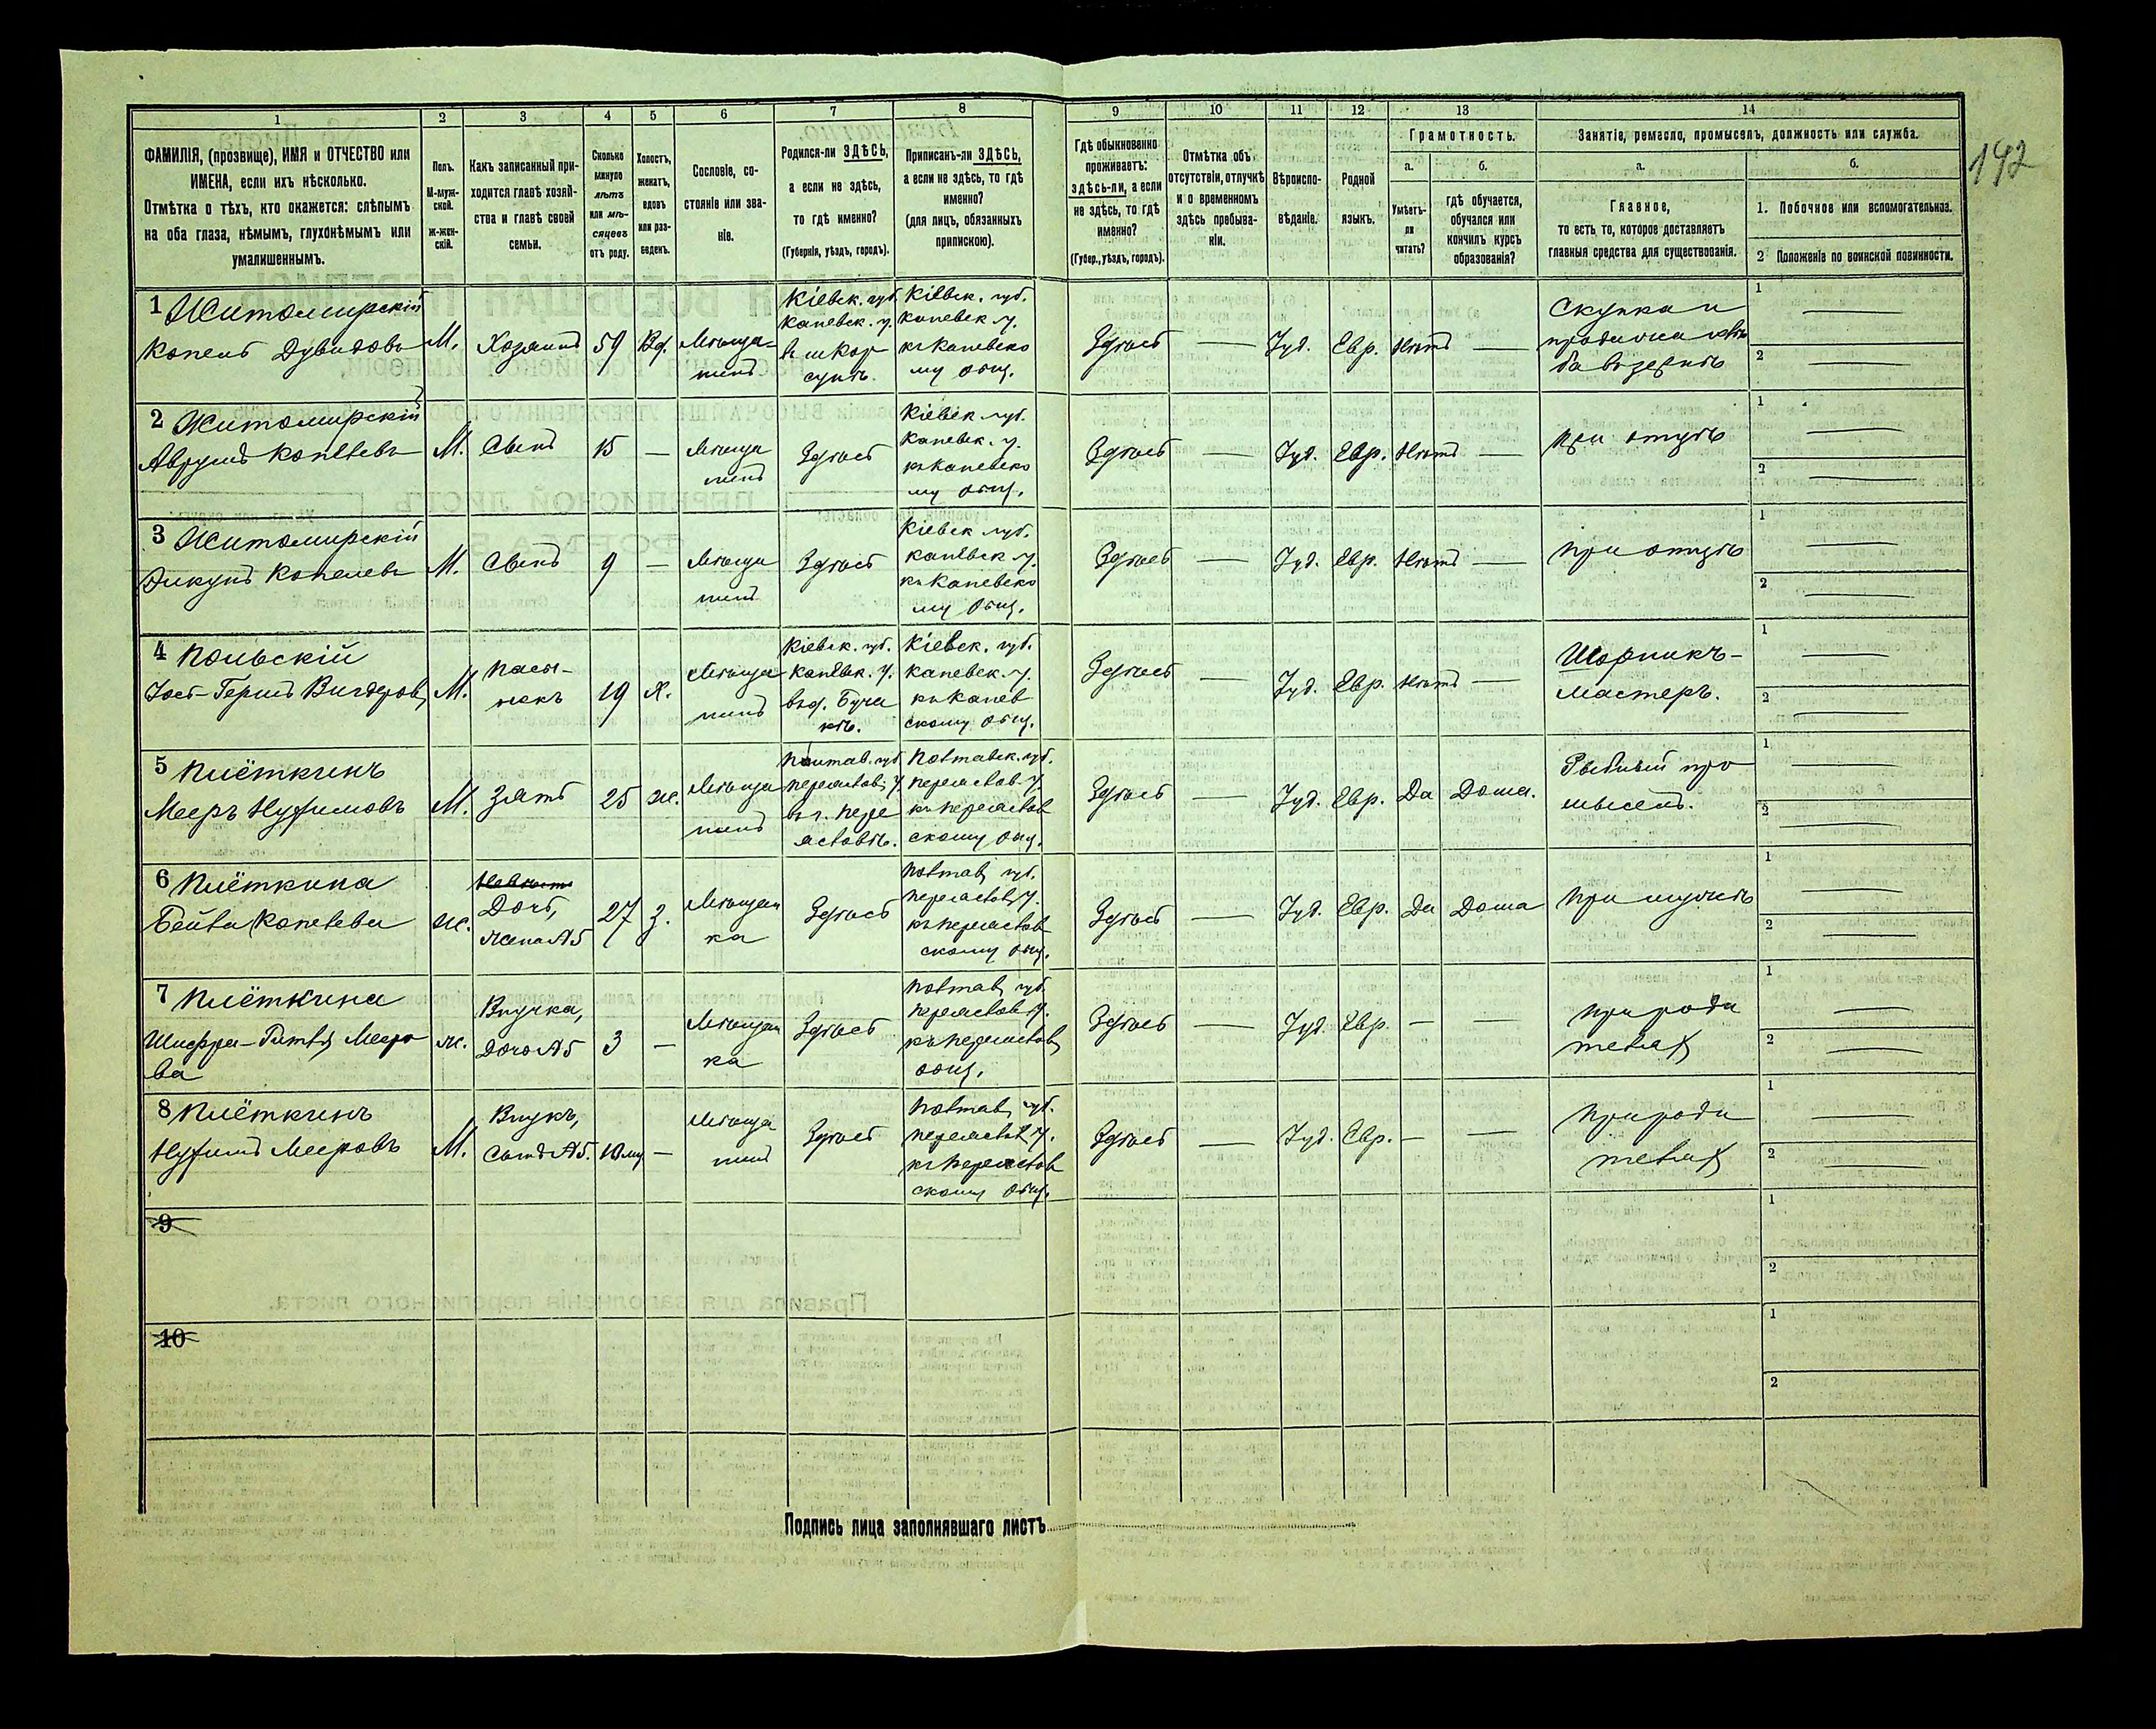 192
1 2 3 4 5 6 7 8 9 10 11 12 13 14
ФАМИЛІЯ, (прозвище), ИМЯ и ОТЧЕСТВО или
ИМЕНА, если ихъ нѣсколько.
Отмѣтка о тѣхъ, кто окажется: слѣпымъ
на оба глаза, нѣмымъ, глухонѣмымъ или
умалишеннымъ.
Полъ.
М-муж-
ской.
Ж-жен-
скій.
Какъ записанный при-
ходится главѣ хозяй-
ства и главѣ своей
семьи.
Сколько
минуло
лѣтъ
или мѣ-
сяцевъ
отъ роду.
Холостъ,
женатъ,
вдовъ
или раз-
веденъ.
Сословіе, со-
стояніе или зва-
ніе.
Родился-ли ЗДѢСЬ,
а если не здѣсь,
то гдѣ именно?
(Губернія, уѣздъ, городъ).
Приписанъ-ли ЗДѢСЬ,
а если не здѣсь, то гдѣ
именно?
(для лицъ, обязанныхъ
припискою).
Гдѣ обыкновенно
проживаетъ:
здѣсь-ли, а если
не здѣсь, то гдѣ
именно?
(Губер., уѣздъ, городъ).
Отмѣтка объ
отсутствіи, отлучкѣ
и о временномъ
здѣсь пребыва-
ніи.
Вѣроиспо-
вѣданіе.
Родной
языкъ.
Грамотность.
а. б.
Умѣетъ-
ли
читать?
гдѣ обучается,
обучался или
кончилъ курсъ
образованія?
Занятіе, ремесло, промыселъ, должность или служба.
а. б.
Главное,
то есть то, которое доставляетъ
главныя средства для существованія.
1. Побочное или вспомогательное.
2 Положеніе по воинской повинности.
1 Житомирскій
Копель Дувидовъ
М. Хозяинъ 59 Вд. Мѣща-
нинъ
Кіевск. губ.
Каневск. у.
в м. Кор
сунѣ.
Кіевск. губ.
Каневск. у.
къ Каневско
му общ.
Здѣсь — Іуд. Евр. Нѣтъ —
Скупка и
продажа хлѣ
ба въ зернѣ
1 —
2 —
2 Житомирскій
Аврумъ Копелевъ
М. Сынъ 15 — Мѣща
нинъ
Здѣсь
Кіевск. губ.
Каневск. у.
къ Каневско
му общ.
Здѣсь — Іуд. Евр. Нѣтъ —
При отцѣ
1 —
2 —
3 Житомирскій
Копелевъ
М. Сынъ 9 — Мѣща
нинъ
Здѣсь
Кіевск. губ.
Каневск. у.
къ Каневско
му общ.
Здѣсь — Іуд. Евр. Нѣтъ —
При отцѣ
1 —
2 —
4 Польскій
Іос-Герш Вигдоров,
М. Пасы-
нокъ
19 Х. Мѣща
нинъ
Кіевск. губ.
Каневск. у.
въ д. Буча
кѣ.
Кіевск. губ.
Каневск. у.
къ Канев
скому общ.
Здѣсь — Іуд. Евр. Нѣтъ —
Шорникъ-
мастеръ.
1 —
2 —
5 Плёткинъ
Мееръ Нухимовъ
М. Зять 25 Ж. Мѣща
нинъ
Полтав. губ.
Переяслов. у.
въ г. Пере
яславѣ.
Полтавск. губ.
Переяслав. у.
къ Переяслав
скому общ.
Здѣсь — Іуд. Евр. Да Дома.
Рыбный про
мыселъ.
1 —
2 —
6 Плёткина
Бейла Копелева
Ж. Дочь,
жена №5
27 З. Мѣщан
ка
Здѣсь
Полтав. губ.
Переяслов. у.
къ Переяслав
скому общ.
Здѣсь — Іуд. Евр. Да Дома
При мужѣ
1 —
2 —
7 Плёткина
Шифра-Гитля Мееро
ва
Ж. Внучка,
Дочь №5
3 — Мѣщан
ка
Здѣсь
Полтав. губ.
Переяслов. у.
къ Переяслав.
общ.
Здѣсь — Іуд. Евр. — —
При роди
телях
1 —
2 —
8 Плёткинъ
Нухимъ Мееровъ
М. Внукъ,
Сынъ №5.
10 м. — Мѣща
нинъ
Здѣсь
Полтав. губ.
Переяслав. у.
къ Переяслав
скому общ.
Здѣсь — Іуд. Евр. — —
При роди
телях
1 —
2 —
9
1
2
10
1
2
Подпись лица заполнявшаго листъ